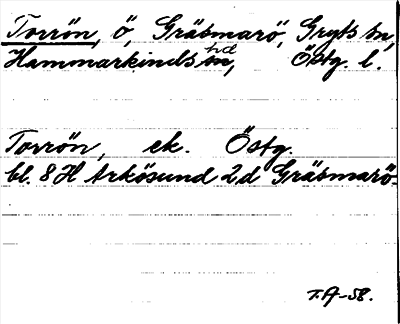 Torrön, ö, Gräsmarö, Gryts sn,
Hammarkinds hd, Östg. l.
Torrön, ek. Östg.
bl. 8H Arkösund 2d Gräsmarö.
T.A-58.